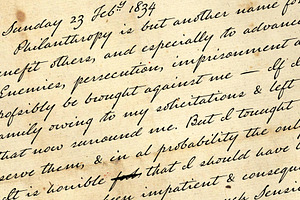 Sunday 23 Feby 1834
Philanthropy is but another name fo
enefit others, and especially to advance
Enemies, persecution, imprisonment a
possibly be brought against me — If I
amily owing to my solicitations & left
that now surround me. But I tought
serve them, & in al probability the on
It is horrible that I should have
een impatient & consequ